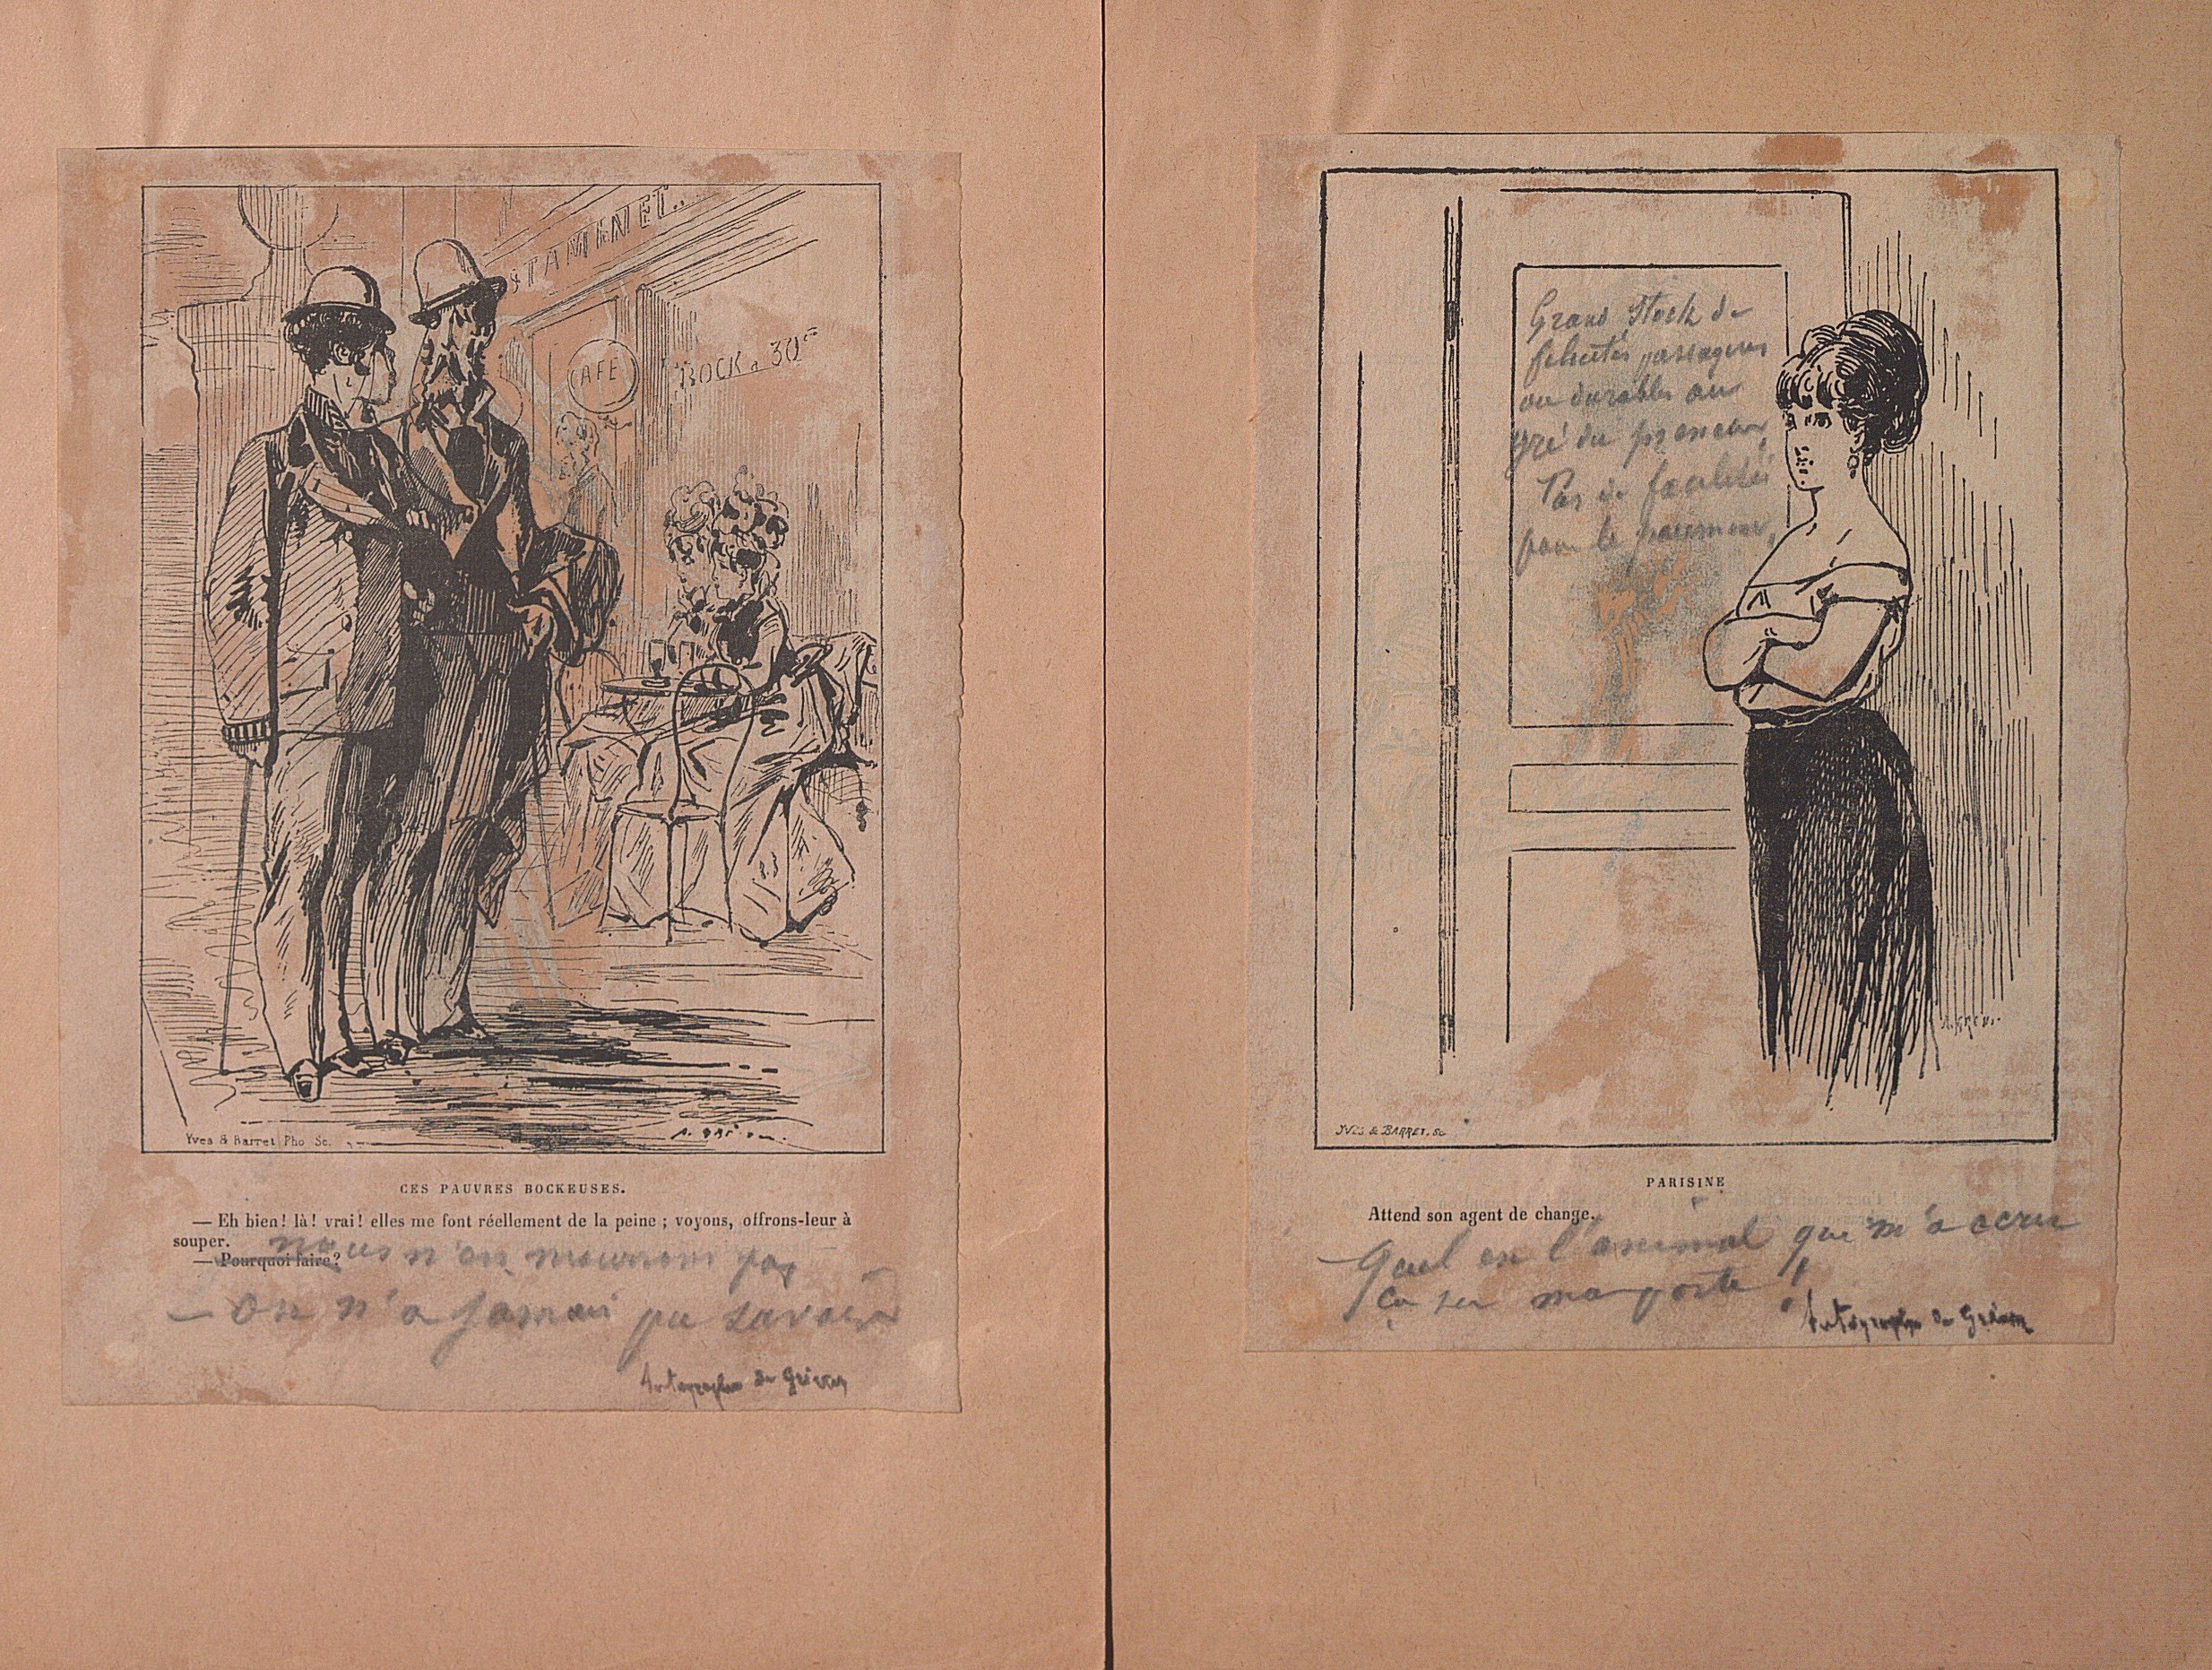 STAMINET.
CAFE
BOCK à 30 ces
Yves & Barret Pho Sc.
CES PAUVRES BOCKEUSES.
— Eh bien! là! vrai! elles me font réellement de la peine ; voyons, offrons-leur à
souper.
nous n'en mourrons pas
— Pourquoi faire?
— On n'a jamais pu savoir
Autographe de Grévin
Grand Stock de
félicités passagères
ou durables au
gré du preneur,
Pas de facilités
pour le paiement,
A. GRÉV
YVES & BARRET. Sc
PARISINE
Attend son agent de change.
— Quel est l'animal qui m'a écrit
ça sur ma porte !
Autographe de Grévin